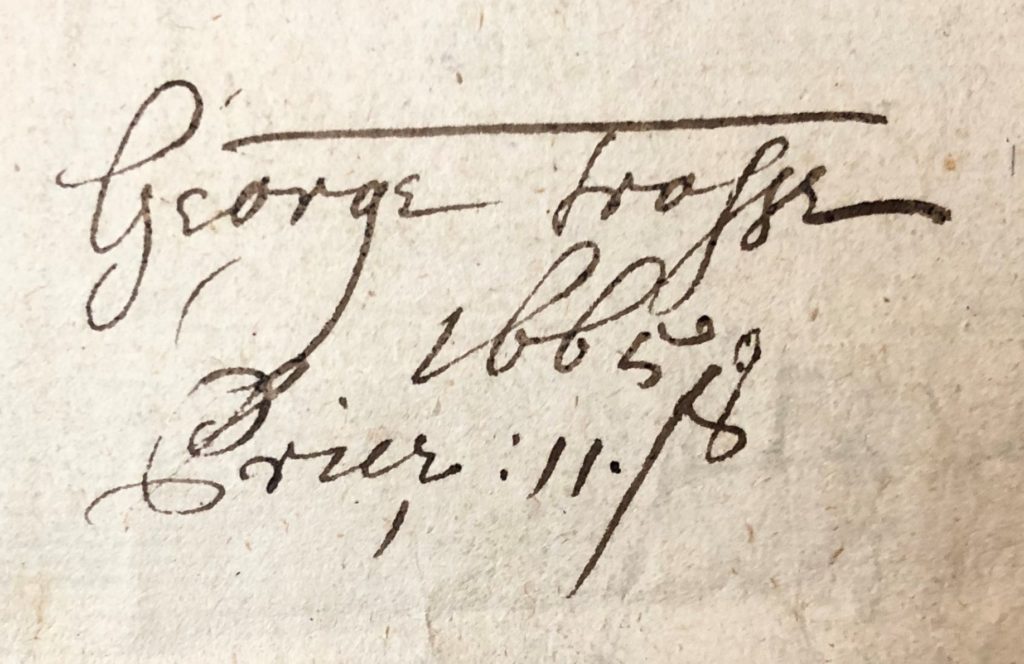 George Trosse
1665
Price: 11./8